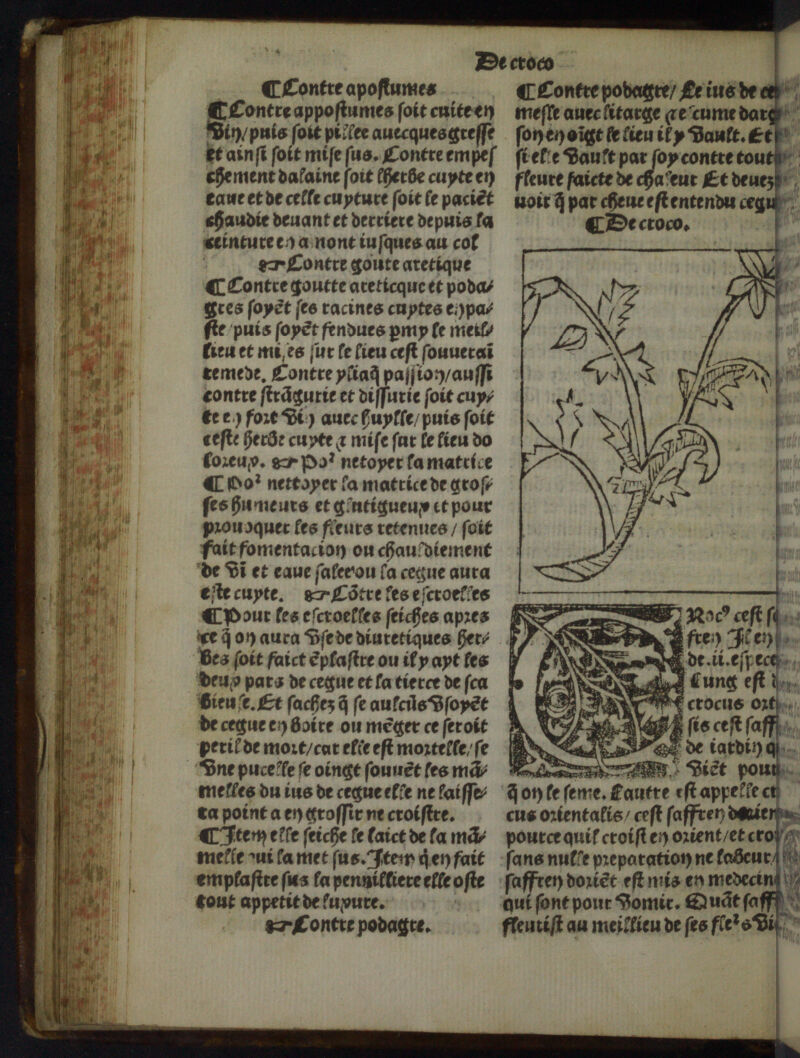 De croco
¶ Contre apostumes
¶ Contre appostumes soit cuite en
Vin/puis soit pillee auecques gresse
et ainsi soit mise sus. Contre empes
chement dalaine soit lherbe cuyte en
eaue et de celle cuyture soit le paciẽt
chaudie deuant et derriere depuis la
ceinture en a mont iusques au col
☞ Contre goute aretique
¶ Contre goutte areticque et poda⸗
gres soyẽt ses racines cuytes en pa⸗
ste puis soyẽt fendues pmy le meil⸗
lieu et mises sur le lieu cest souuerai
remede. Contre yliaq̃ passion/aussi
contre strãgurie et dissurie soit cuy⸗
te en fort Vin auec huylle/puis soit
ceste herbe cuyte ⁊ mise sur le lieu do
loreux. ☞ Po² netoyer la matrice
¶ Po² nettoyer la matrice de gros⸗
ses humeurs et glutigueux et pour
prouoquer les fleurs retenues / soit
fait fomentacion ou chauldiement
de Vĩ et eaue salee ou la cegue aura
este cuyte. ☞ Cõtre les escroelles
¶ Pour les escroelles seiches apres
ce q̃ on aura Vse de diuretiques her⸗
bes soit faict ẽplastre ou il y ayt les
deux pars de cegue et la tierce de sca
bieuse. Et sachez q̃ se aulcũs Vsoyẽt
de cegue en boire ou mẽger ce seroit
peril de mort/car elle est mortelle/se
Vne pucelle se oingt souuẽt ses mã⸗
melles du ius de cegue elle ne laisse⸗
ra point a en grossir ne croistre.
¶ Item elle seiche le laict de la mã⸗
melle qui la met sus. Item q̃ en fait
emplastre sus la pennilliere elle oste
tout appetit de luxure.
☞ Contre podagre.
¶ Contre podagre/ Le ius de ce
mesle auec litarge ⁊ escume darg
son en oigt le lieu il y Vault. Et
si elle Vault par soy contre tout
fleure faicte de chaleur Et deuez
uoir q̃ par cheue est entendu cegu
¶ De croco.
Croc⁹ cest s
fren Il en
de .ii. espece
Lung est
crocus ort
sis cest saff
de iardin q
Viẽt pour
q̃ on le seme. Lautre est appelle cr
cus orientalis/ cest saffren dorien
pource quil croist en orient/et cro
sans nulle preparation ne labeur/
saffren doriẽt est mis en medecin
qui sont pour Vomir. Quãt saff
fleurist au meillieu de ses fle²s Vi